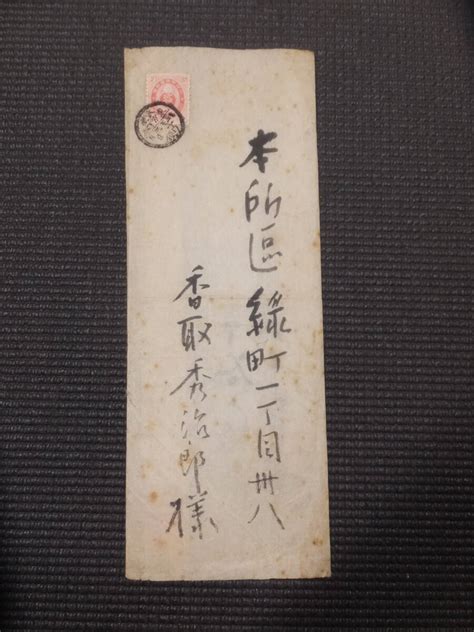 本所區綠町一丁目卌八
香取秀治郎様